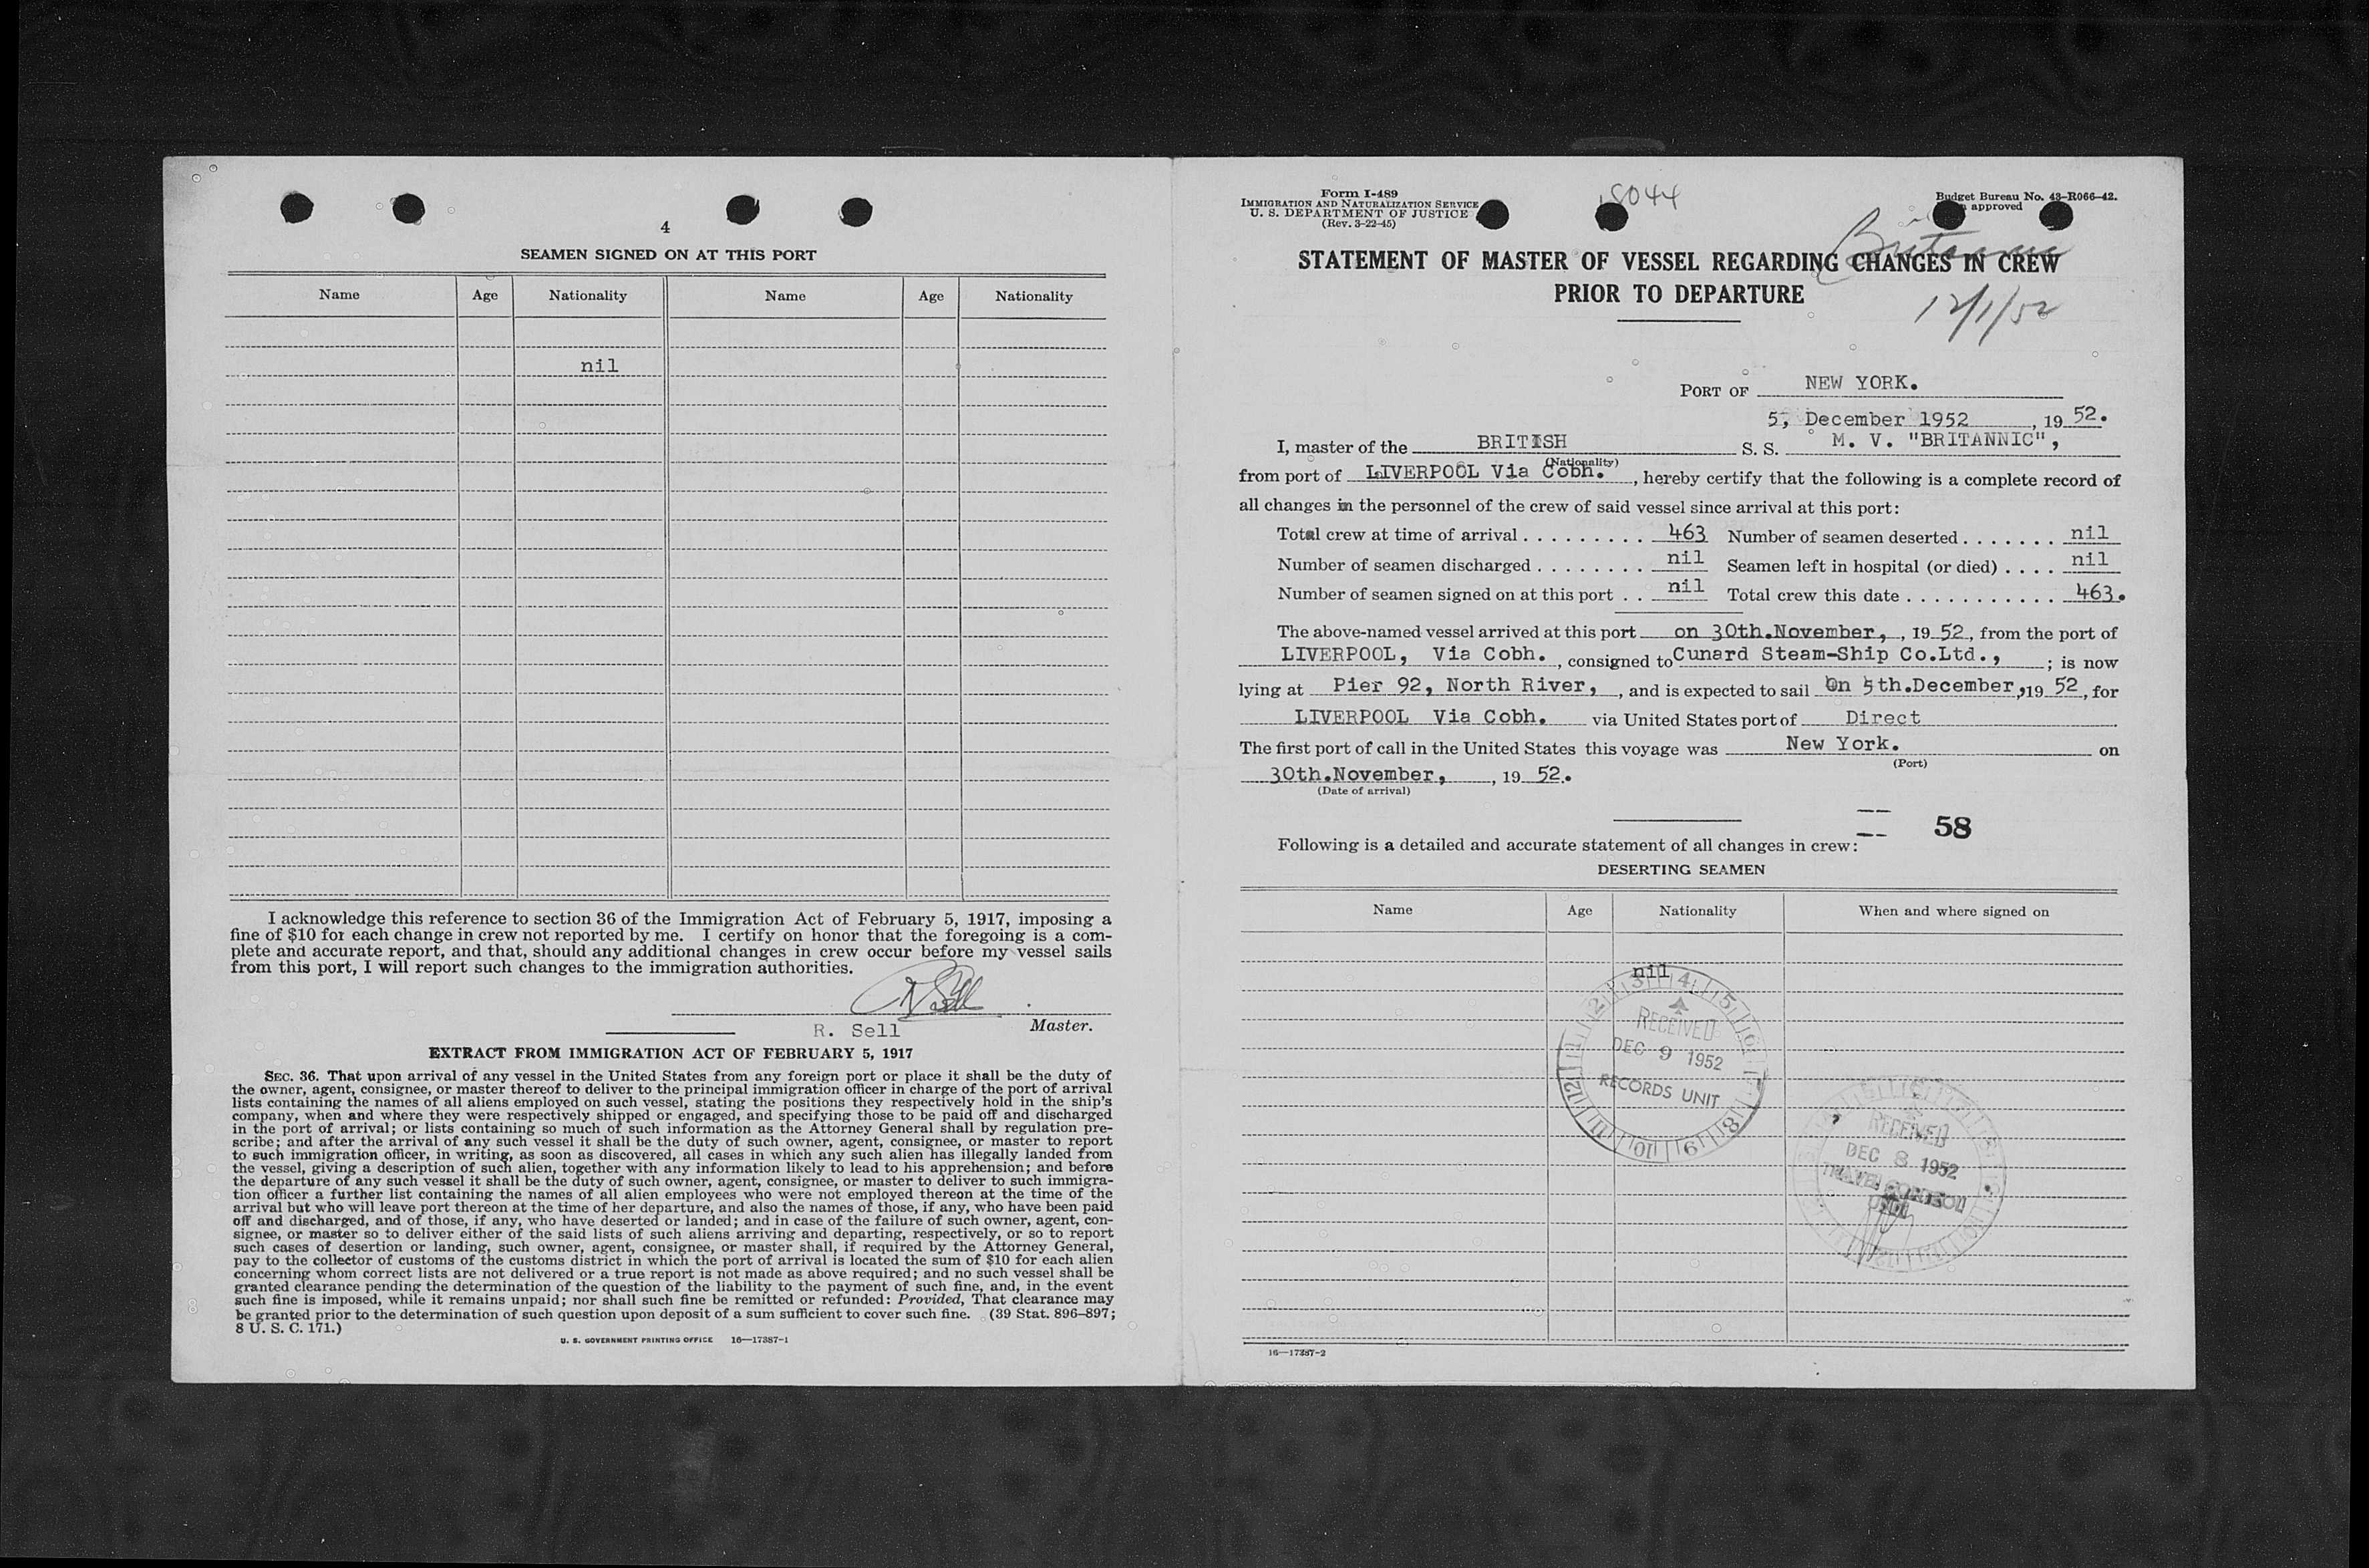 4
SEAMEN SIGNED ON AT THIS PORT
Name Age Nationality Name Age Nationality
nil
I acknowledge this reference to section 36 of the Immigration Act of February 5, 1917, imposing a
fine of $10 for each change in crew not reported by me. I certify on honor that the foregoing is a com-
plete and accurate report, and that, should any additional changes in crew occur before my vessel sails
from this port, I will report such changes to the immigration authorities.
R Sell
R. Sell Master.
EXTRACT FROM IMMIGRATION ACT OF FEBRUARY 5, 1917
SEC. 36. That upon arrival of any vessel in the United States from any foreign port or place it shall be the duty of
the owner, agent, consignee, or master thereof to deliver to the principal immigration officer in charge of the port of arrival
lists containing the names of all aliens employed on such vessel, stating the positions they respectively hold in the ship's
company, when and where they were respectively shipped or engaged, and specifying those to be paid off and discharged
in the port of arrival; or lists containing so much of such information as the Attorney General shall by regulation pre-
scribe; and after the arrival of any such vessel it shall be the duty of such owner, agent, consignee, or master to report
to such immigration officer, in writing, as soon as discovered, all cases in which any such alien has illegally landed from
the vessel, giving a description of such alien, together with any information likely to lead to his apprehension; and before
the departure of any such vessel it shall be the duty of such owner, agent, consignee, or master to deliver to such immigra-
tion officer a further list containing the names of all alien employees who were not employed thereon at the time of the
arrival but who will leave port thereon at the time of her departure, and also the names of those, if any, who have been paid
off and discharged, and of those, if any, who have deserted or landed; and in case of the failure of such owner, agent, con-
signee, or master so to deliver either of the said lists of such aliens arriving and departing, respectively, or so to report
such cases of desertion or landing, such owner, agent, consignee, or master shall, if required by the Attorney General,
pay to the collector of customs of the customs district in which the port of arrival is located the sum of $10 for each alien
concerning whom correct lists are not delivered or a true report is not made as above required; and no such vessel shall be
granted clearance pending the determination of the question of the liability to the payment of such fine, and, in the event
such fine is imposed, while it remains unpaid; nor shall such fine be remitted or refunded: Provided, That clearance may
be granted prior to the determination of such question upon deposit of a sum sufficient to cover such fine. (39 Stat. 896–897;
8 U. S. C. 171.)
U. S. GOVERNMENT PRINTING OFFICE 16—17387-1
Form I-489
IMMIGRATION AND NATURALIZATION SERVICE
U. S. DEPARTMENT OF JUSTICE
(Rev. 3-22-45)
18044
Budget Bureau No. 43-R066-42.
approved
Britannic
STATEMENT OF MASTER OF VESSEL REGARDING CHANGES IN CREW
PRIOR TO DEPARTURE
12/1/52
PORT OF NEW YORK.
5, December 1952, 19 52.
I, master of the BRITISH S. S. M. V. "BRITANNIC",
(Nationality)
from port of LIVERPOOL Via Cobh., hereby certify that the following is a complete record of
all changes in the personnel of the crew of said vessel since arrival at this port:
Total crew at time of arrival . . . . . . . . . 463 Number of seamen deserted . . . . . . . nil
Number of seamen discharged . . . . . . . . nil Seamen left in hospital (or died) . . . . nil
Number of seamen signed on at this port . . nil Total crew this date . . . . . . . . . . . . 463.
The above-named vessel arrived at this port on 30th.November, , 19 52, from the port of
LIVERPOOL, Via Cobh. , consigned to Cunard Steam-Ship Co.Ltd., ; is now
lying at Pier 92, North River, , and is expected to sail On 5th.December, 19 52, for
LIVERPOOL Via Cobh. via United States port of Direct
The first port of call in the United States this voyage was New York. on
(Port)
30th.November, , 19 52.
(Date of arrival)
58
Following is a detailed and accurate statement of all changes in crew:
DESERTING SEAMEN
Name Age Nationality When and where signed on
nil
RECEIVED
DEC 9 1952
RECORDS UNIT
RECEIVED
DEC 8 1952
UNIT
16—17387-2